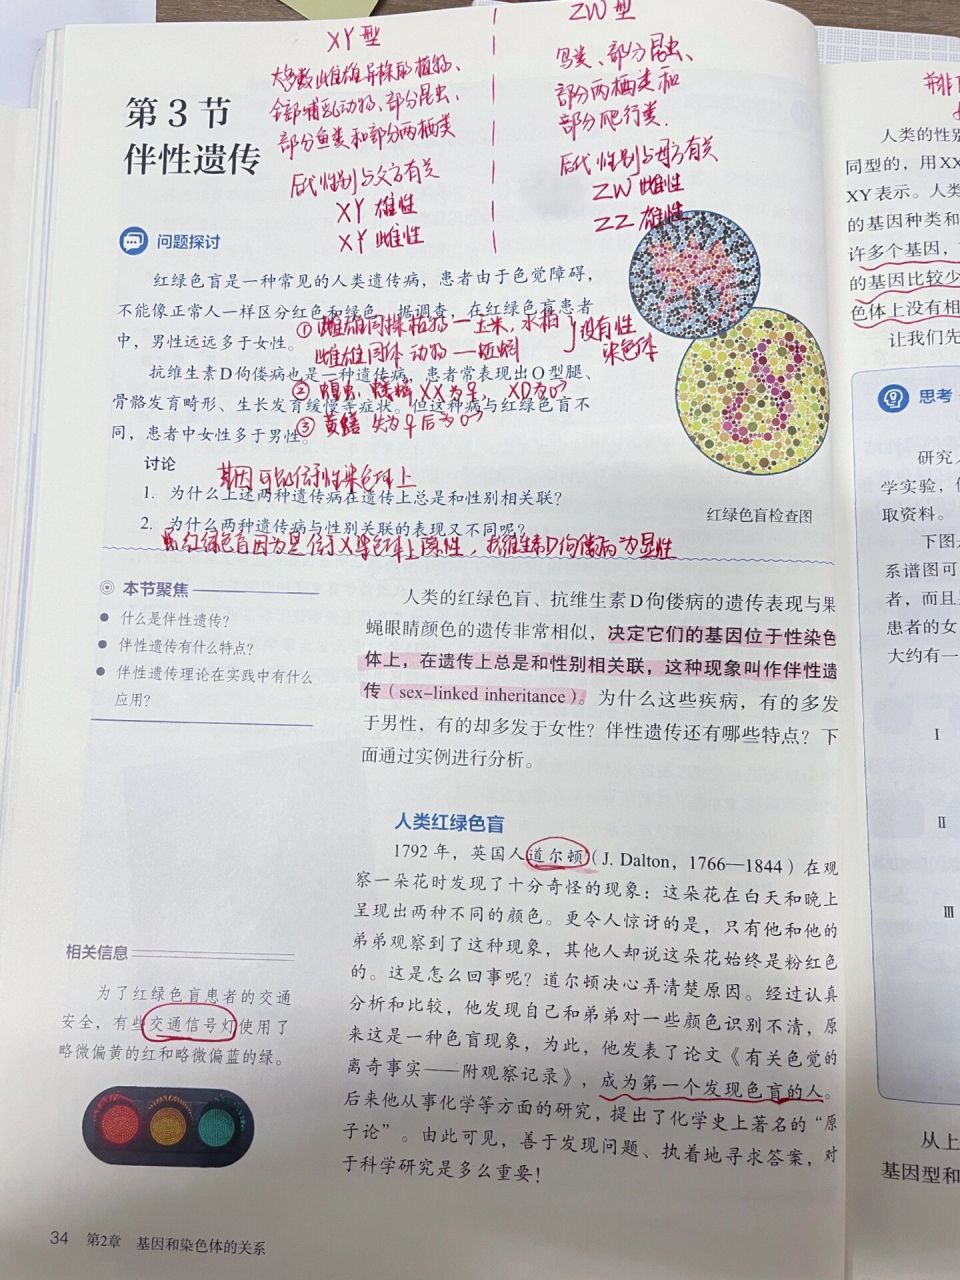 XY型
大多数雌雄异株的植物、
全部哺乳动物、部分昆虫、
部分鱼类和部分两栖类
后代性别与父方有关
XY 雄性
XY 雌性
ZW型
鸟类、部分昆虫、
部分两栖类和
部分爬行类.
后代性别与母方有关
ZW 雌性
ZZ 雄性
第3节
伴性遗传
问题探讨
红绿色盲是一种常见的人类遗传病，患者由于色觉障碍，
不能像正常人一样区分红色和绿色。据调查，在红绿色盲患者
中，男性远远多于女性。
① 雌雄同株植物—玉米，水稻
雌雄同体动物—蚯蚓
没有性
染色体
抗维生素D佝偻病也是一种遗传病，患者常表现出O型腿、
骨骼发育畸形、生长发育缓慢等症状。但这种病与红绿色盲不
同，患者中女性多于男性。
② 蝗虫、蟋蟀 XX为♀， XO为♂
③ 黄鳝 先为♀后为♂
讨论
基因可能位于性染色体上
1. 为什么上述两种遗传病在遗传上总是和性别相关联？
2. 为什么两种遗传病与性别关联的表现又不同呢？
红绿色盲因为是位于X染色体上隐性，抗维生素D佝偻病为显性
红绿色盲检查图
本节聚焦
● 什么是伴性遗传？
● 伴性遗传有什么特点？
● 伴性遗传理论在实践中有什么
应用？
人类的红绿色盲、抗维生素D佝偻病的遗传表现与果
蝇眼睛颜色的遗传非常相似，决定它们的基因位于性染色
体上，在遗传上总是和性别相关联，这种现象叫作伴性遗
传（sex-linked inheritance）。为什么这些疾病，有的多发
于男性，有的却多发于女性？伴性遗传还有哪些特点？下
面通过实例进行分析。
人类红绿色盲
1792 年，英国人道尔顿（J. Dalton，1766—1844）在观
察一朵花时发现了十分奇怪的现象：这朵花在白天和晚上
呈现出两种不同的颜色。更令人惊讶的是，只有他和他的
弟弟观察到了这种现象，其他人却说这朵花始终是粉红色
的。这是怎么回事呢？道尔顿决心弄清楚原因。经过认真
分析和比较，他发现自己和弟弟对一些颜色识别不清，原
来这是一种色盲现象，为此，他发表了论文《有关色觉的
离奇事实——附观察记录》，成为第一个发现色盲的人。
后来他从事化学等方面的研究，提出了化学史上著名的“原
子论”。由此可见，善于发现问题、执着地寻求答案，对
于科学研究是多么重要！
相关信息
为了红绿色盲患者的交通
安全，有些交通信号灯使用了
略微偏黄的红和略微偏蓝的绿。
34 第2章 基因和染色体的关系
并非
人类的性别
同型的，用XX
XY表示。人类
的基因种类和
许多个基因，
的基因比较少
色体上没有相
让我们先
思考
研究人
学实验，
取资料。
下图
系谱图可
者，而且
患者的女
大约有一
I
II
III
从上
基因型和